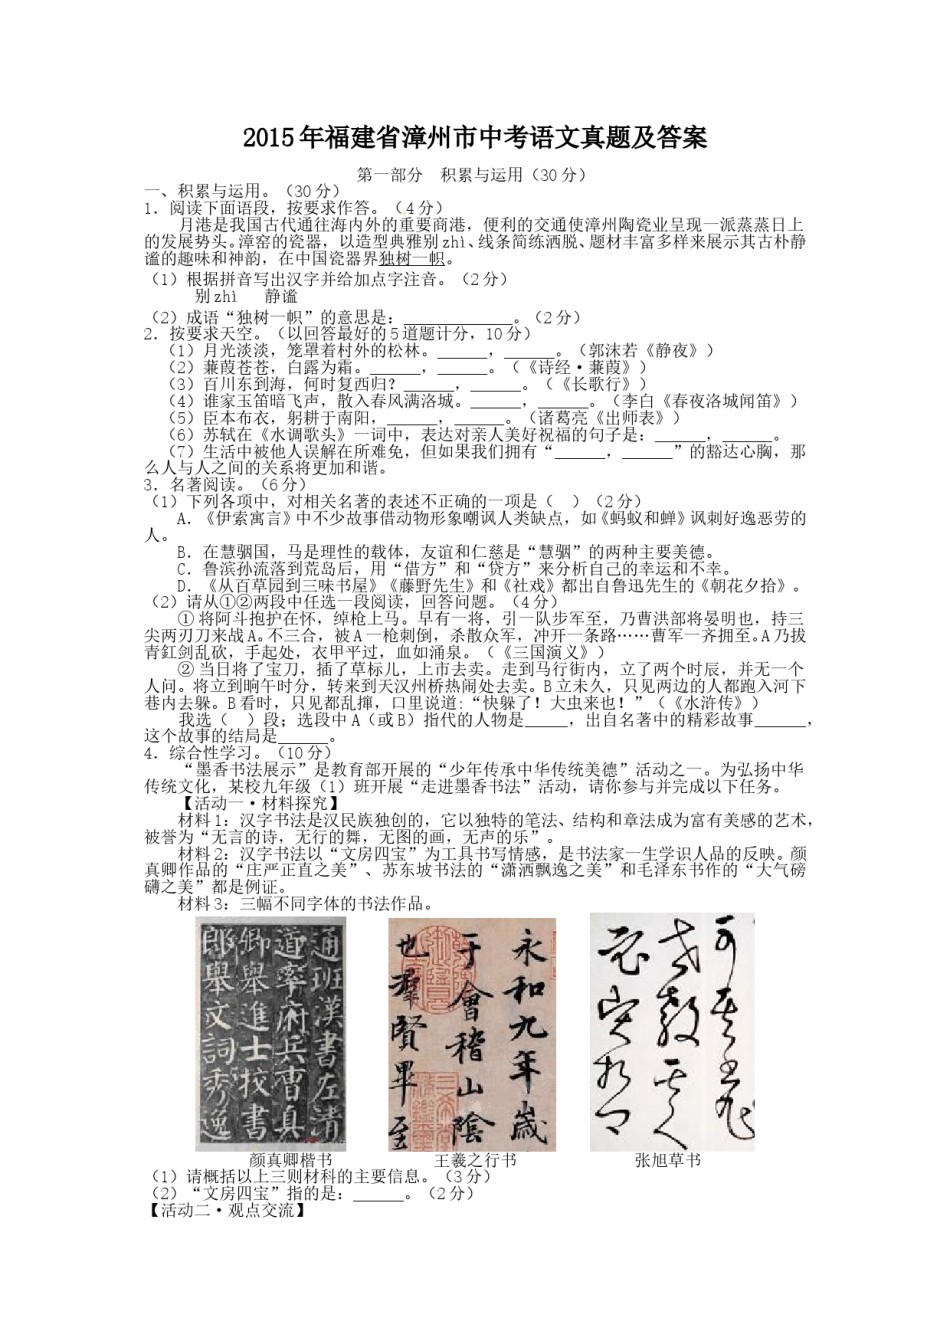 2015年福建省漳州市中考语文真题及答案
第一部分 积累与运用（30分）
一、积累与运用。（30分）
1．阅读下面语段，按要求作答。（4分）
月港是我国古代通往海内外的重要商港，便利的交通使漳州陶瓷业呈现一派蒸蒸日上
的发展势头。漳窑的瓷器，以造型典雅别zhì、线条简练洒脱、题材丰富多样来展示其古朴静
谧的趣味和神韵，在中国瓷器界独树一帜。
（1）根据拼音写出汉字并给加点字注音。（2分）
别zhì 静谧
（2）成语“独树一帜”的意思是：_____________。（2分）
2．按要求天空。（以回答最好的5道题计分，10分）
（1）月光淡淡，笼罩着村外的松林。______，______。（郭沫若《静夜》）
（2）蒹葭苍苍，白露为霜。______，______。（《诗经·蒹葭》）
（3）百川东到海，何时复西归？______，______。（《长歌行》）
（4）谁家玉笛暗飞声，散入春风满洛城。______，______。（李白《春夜洛城闻笛》）
（5）臣本布衣，躬耕于南阳，______，______。（诸葛亮《出师表》）
（6）苏轼在《水调歌头》一词中，表达对亲人美好祝福的句子是：______，______。
（7）生活中被他人误解在所难免，但如果我们拥有“______，______”的豁达心胸，那
么人与人之间的关系将更加和谐。
3．名著阅读。（6分）
（1）下列各项中，对相关名著的表述不正确的一项是（ ）（2分）
A．《伊索寓言》中不少故事借动物形象嘲讽人类缺点，如《蚂蚁和蝉》讽刺好逸恶劳的
人。
B．在慧骃国，马是理性的载体，友谊和仁慈是“慧骃”的两种主要美德。
C．鲁滨孙流落到荒岛后，用“借方”和“贷方”来分析自己的幸运和不幸。
D．《从百草园到三味书屋》《藤野先生》和《社戏》都出自鲁迅先生的《朝花夕拾》。
（2）请从①②两段中任选一段阅读，回答问题。（4分）
①将阿斗抱护在怀，绰枪上马。早有一将，引一队步军至，乃曹洪部将晏明也，持三
尖两刃刀来战A。不三合，被A一枪刺倒，杀散众军，冲开一条路……曹军一齐拥至。A乃拔
青釭剑乱砍，手起处，衣甲平过，血如涌泉。（《三国演义》）
②当日将了宝刀，插了草标儿，上市去卖。走到马行街内，立了两个时辰，并无一个
人问。将立到晌午时分，转来到天汉州桥热闹处去卖。B立未久，只见两边的人都跑入河下
巷内去躲。B看时，只见都乱撺，口里说道：“快躲了！大虫来也！”（《水浒传》）
我选（ ）段；选段中A（或B）指代的人物是_____，出自名著中的精彩故事______，
这个故事的结局是______。
4．综合性学习。（10分）
“墨香书法展示”是教育部开展的“少年传承中华传统美德”活动之一。为弘扬中华
传统文化，某校九年级（1）班开展“走进墨香书法”活动，请你参与并完成以下任务。
【活动一·材料探究】
材料1：汉字书法是汉民族独创的，它以独特的笔法、结构和章法成为富有美感的艺术，
被誉为“无言的诗，无行的舞，无图的画，无声的乐”。
材料2：汉字书法以“文房四宝”为工具书写情感，是书法家一生学识人品的反映。颜
真卿作品的“庄严正直之美”、苏东坡书法的“潇洒飘逸之美”和毛泽东书作的“大气磅
礴之美”都是例证。
材料3：三幅不同字体的书法作品。
通班漢書左清
道率府兵曹真
卿舉進士校書
郎舉文詞秀逸
永和九年歲
于會稽山陰
也羣賢畢至
颜真卿楷书 王羲之行书 张旭草书
（1）请概括以上三则材料的主要信息。（3分）
（2）“文房四宝”指的是：______。（2分）
【活动二·观点交流】